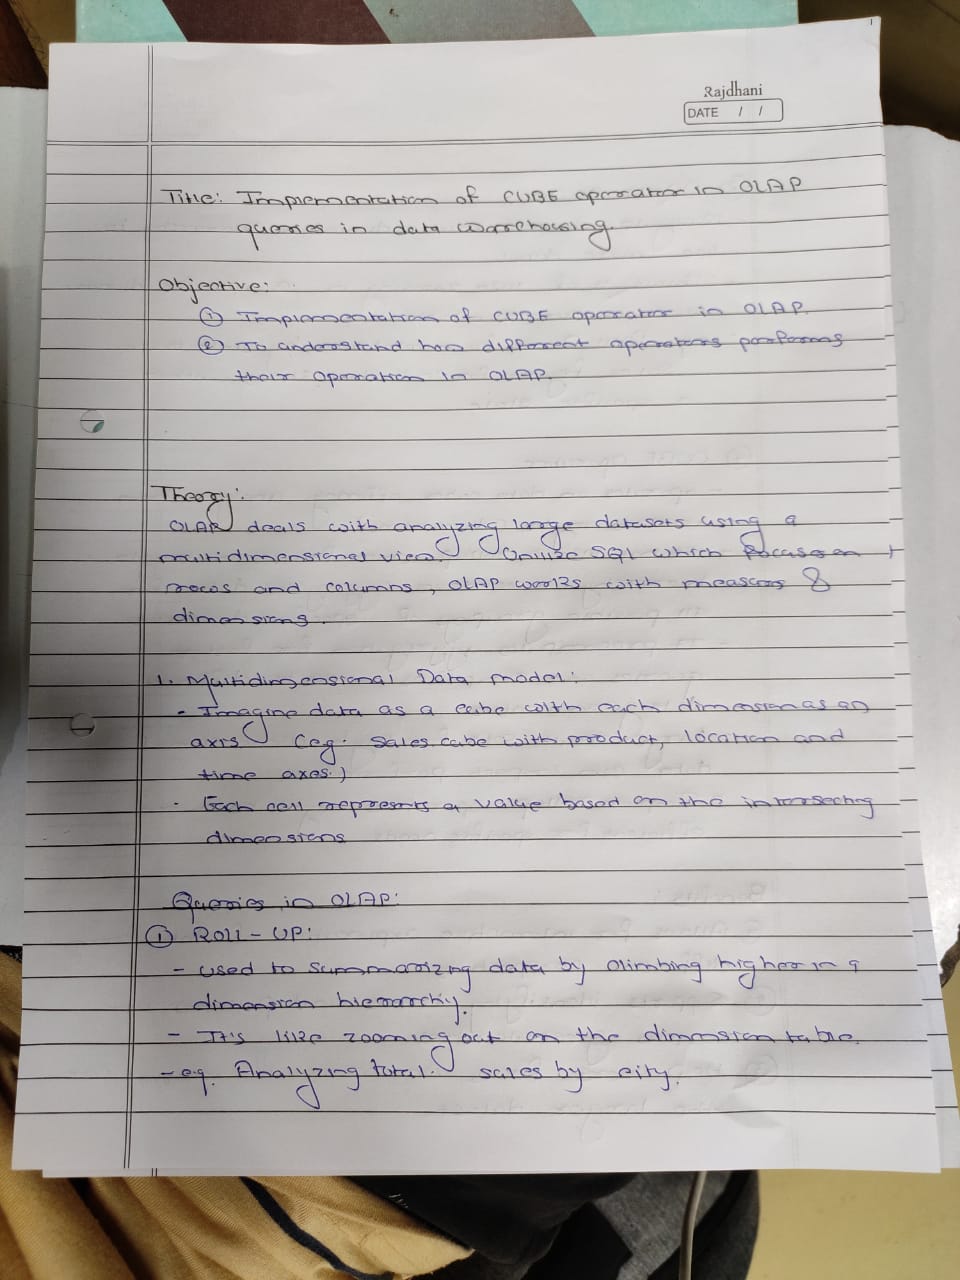 Rajdhani
DATE / /
Title: Implementation of CUBE operator in OLAP
queries in data warehousing.
Objective:
① Implementation of CUBE operator in OLAP.
② To understand how different operators performs
their operation in OLAP.
Theory:
OLAP deals with analyzing large datasets using a
multidimensional view. Unlike SQL which focuses on
rows and columns, OLAP works with measures &
dimensions.
1. Multidimensional Data model:
- Imagine data as a cube with each dimension as an
axis (eg. sales cube with product, location and
time axes.)
- Each cell represents a value based on the intersecting
dimensions
Queries in OLAP:
① ROLL-UP:
- used to summarizing data by climbing higher in a
dimension hierarchy.
- It's like zooming out on the dimension table.
- eg. Analyzing total sales by city.